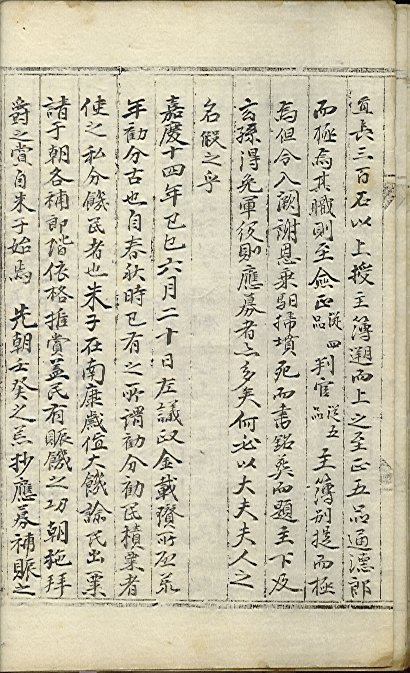 三百石以上授主簿遡而上之至正五品通德郎
而極焉其職則至僉正從四品判官從五品主簿別提而極
焉但令入闕謝恩乘馹掃墳死而書銘而題主下及
玄孫得免軍役則應募者亦多矣何必以大夫夫人之
名假之乎
嘉慶十四年己巳六月二十日左議政金載瓚所啓荒
年勸分古也自春秋時已有之所謂勸分勸民積粟者
使之私分饑民者也朱子在南康歲値大饑諭民出粟
請于朝各補郎階依格推賞盖民有賑饑之功朝施拜
爵之賞自朱子始焉 先朝壬癸之荒抄應募補賑之